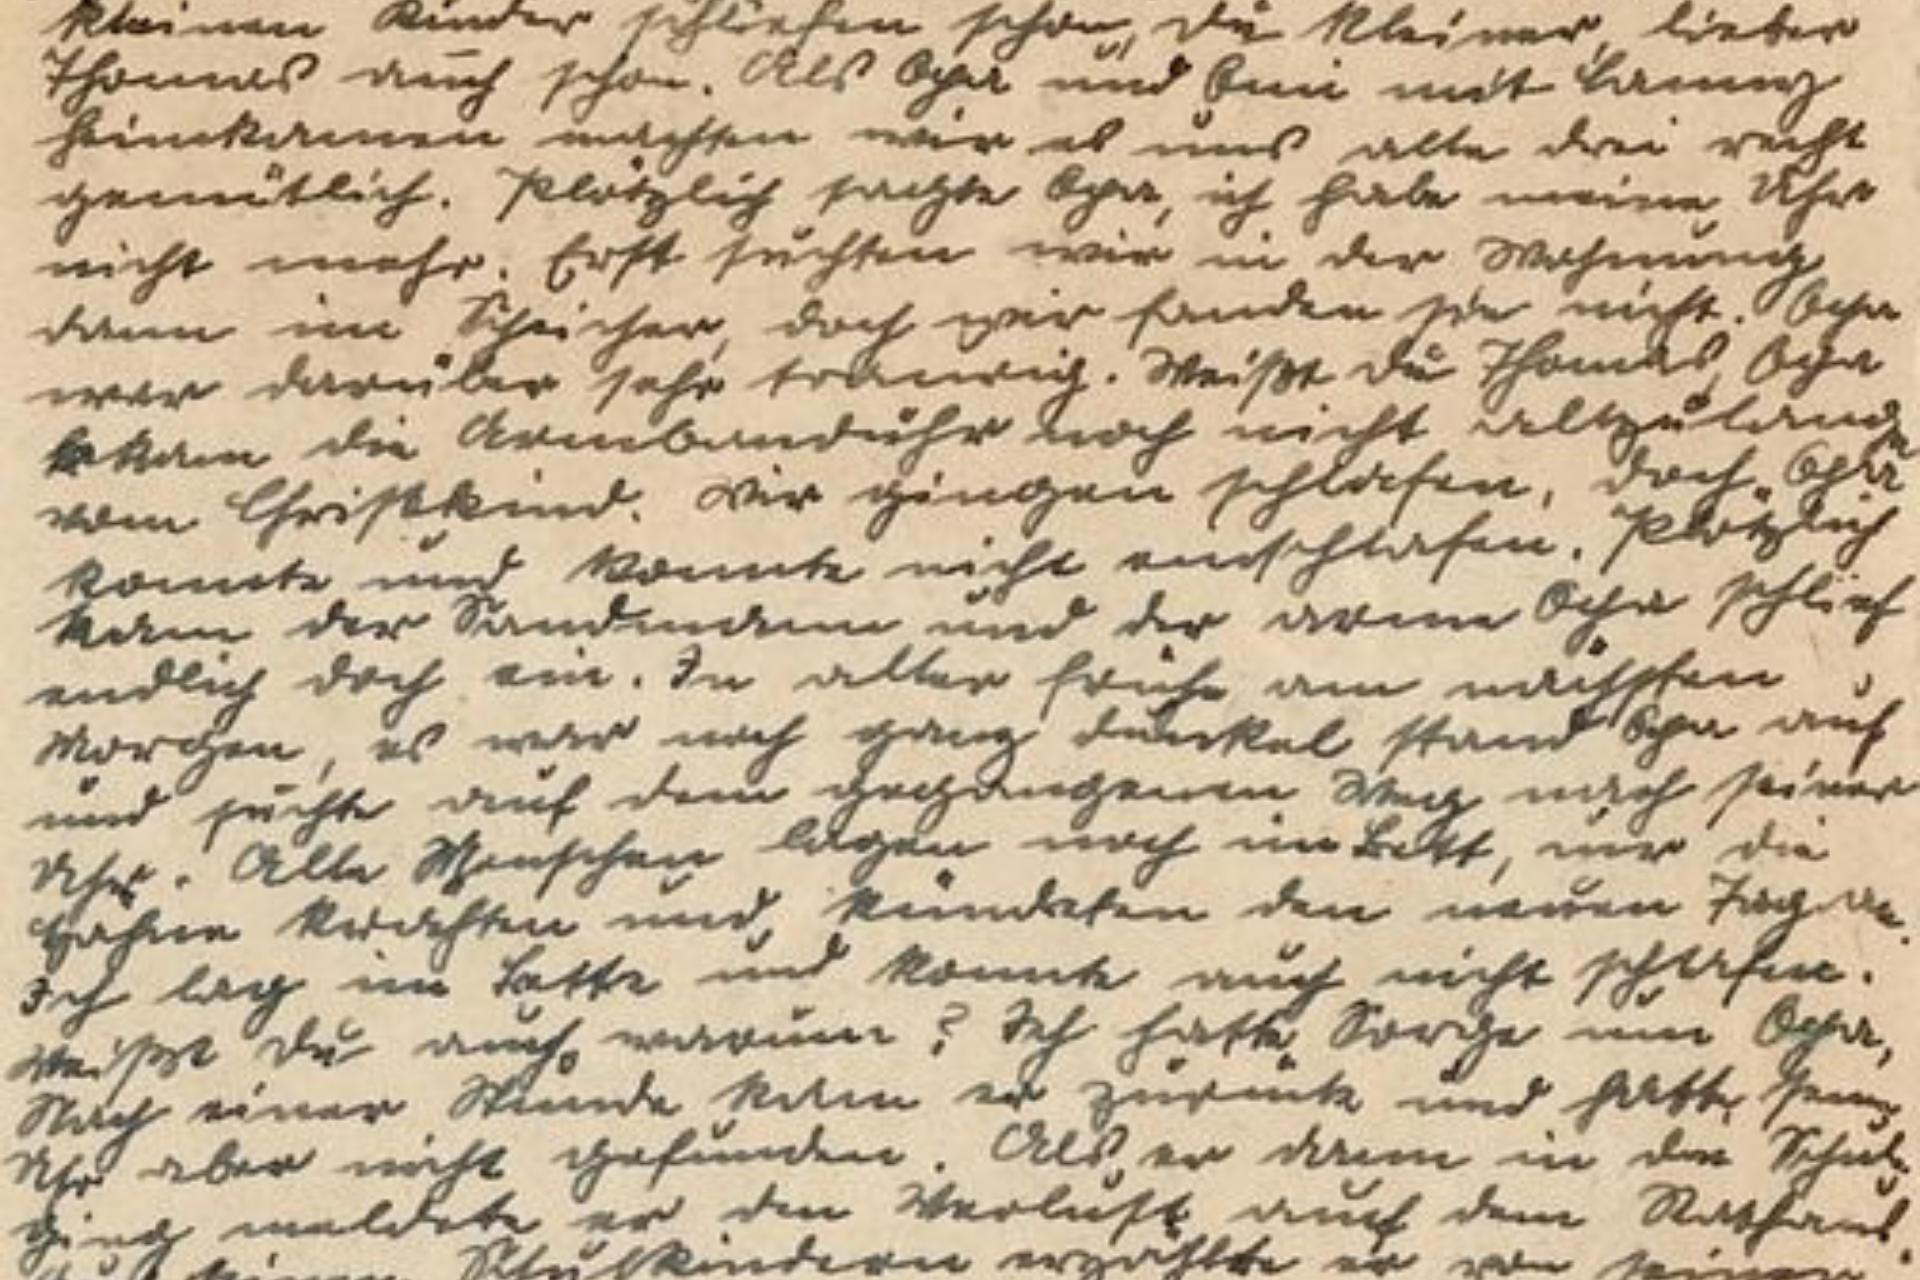 kleinen Kinder schliefen schon, Du kleiner, lieber
Thomas auch schon. Als Opa und Omi mit
heimkamen machten wir es uns alle drei recht
gemütlich. Plötzlich sagte Opa, ich habe meine Uhr
nicht mehr. Erst suchten wir in der Wohnung
dann im Speicher, doch wir fanden sie nicht. Opa
war darüber sehr traurig. Weißt Du Thomas, Opa
bekam die Armbanduhr noch nicht allzulange
vom Christkind. Wir gingen schlafen, doch Opa
konnte und konnte nicht einschlafen. Plötzlich
kam der Sandmann und der arme Opa schlief
endlich doch ein. In aller frühe am nächsten
Morgen, es war noch ganz dunkel stand Opa auf
und suchte auf dem gegangenen Weg nach seiner
Uhr. Alle Menschen lagen noch im Bett, nur die
Hähne krächten und kündeten den neuen Tag an.
Ich lag im Bette und konnte auch nicht schlafen.
Weißt Du auch warum? Ich hatte Sorge um Opa,
Nach einer Stunde kam er zurück und hatte seine
Uhr aber nicht gefunden. Als er dann in die Schule
ging meldete er den Verlust auf dem Rathaus.
Schulkindern erzählte er von seiner